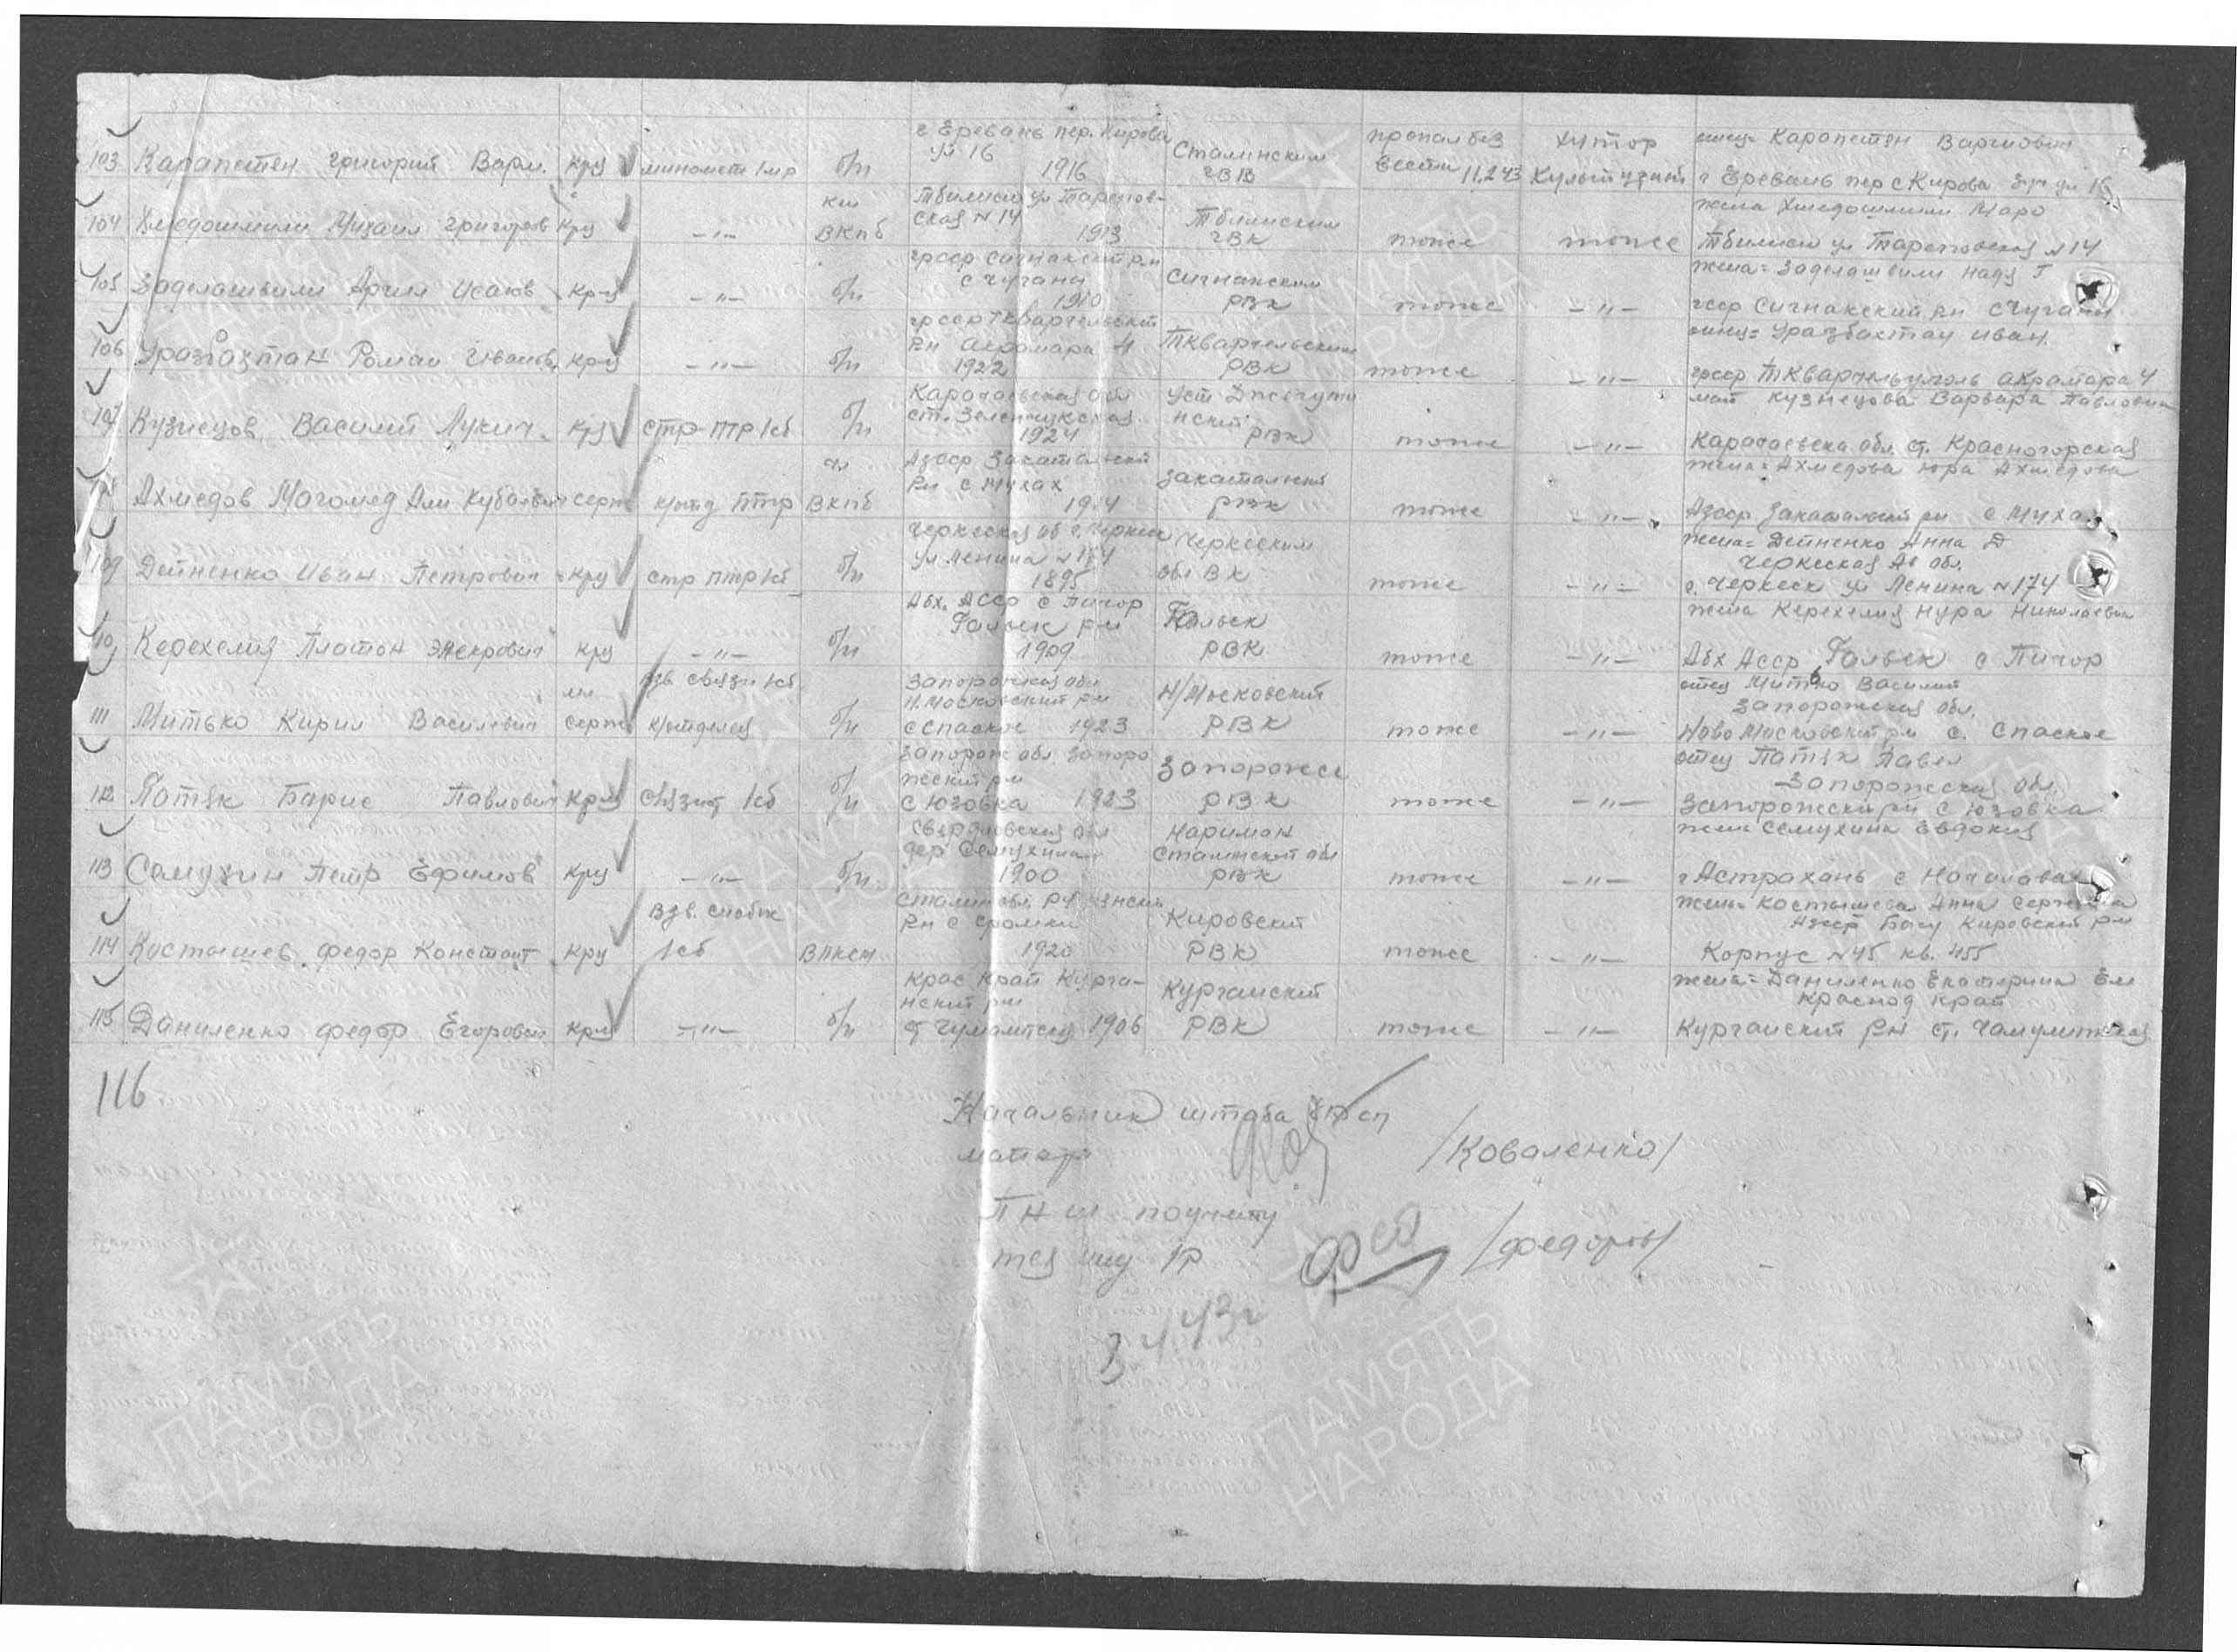 103 Карапетен Григорий Варт. кр-ц минометч 1мр б/п г Еревань пер. Кирова ул 16 1916 Сталинским ГВК пропал без вести 11.2.43 хутор отец- Карапетен Вартиович г Ереван пер с Кирова ул 16
104 Михаил Григоров кр-ц -"- кан ВКПб Тбилиси ул № 14 1913 Тбилиским ГВК тоже тоже жена Маро Тбилиси ул № 14
105 Заделашвили Арчил Исаков кр-ц -"- б/п грсср Сигнакский р-н с Чугани 1910 Сигнакским РВК тоже -"- жена- Заделашвили Надя Г грсср Сигнакский р-н с Чугани
106 Уразбахтан Роман Иванов. кр-ц -"- б/п грсср Ткварчельский р-н Акрамара 4 1922 Ткварчельским РВК тоже -"- отец- Уразбахтан Иван. грсср Ткварчельуголь Акрамара 4
107 Кузнецов Василий Лукич. кр-ц стр-ПТР 1сб б/п Карачаевская обл ст. Зеленчукская 1924 Уст Джегутинский РВК тоже -"- мать Кузнецова Варвара Павловна Карачаевска обл. ст. Красногорская
108 Ахмедов Магомед Али серж к/отд ПТР ВКПб Азсср Закатальский р-н с Мухах 1914 Закатальский РВК тоже -"- жена- Ахмедова Юра Ахмедова Азсср Закатальский р-н с Мухах
109 Дейненко Иван Петрович кр-ц стр ПТР 1сб б/п Черкеская об г. Черкеск ул Ленина № 174 1895 Черкеским Обл ВК тоже -"- жена- Дейненко Анна Д Черкеская Ав обл. г. Черкеск ул Ленина № 174
110 Керехелия Платон кр-ц -"- б/п Абх. АССР с Пичор Гальск р-н 1909 Гальск РВК тоже -"- жена Керехелия Нура Николаевна Абх АССР Гальск с Пичор
111 Митько Кирил Василевич мл серж взв. связи 1сб к/отделен б/п Запорожская обл Н.Московский р-н с Спаское 1923 Н/Московский РВК тоже -"- отец Митько Василий Запорожская обл. Ново Московский р-н с. Спаское
112 Патяк Барис Павлович кр-ц связист 1сб б/п Запорож обл Запорожский р-н с Юзовка 1923 Запорожск РВК тоже -"- отец Патяк Павел Запорожская обл. Запорожски р-н с Юзовка
113 Семухин Петр Ефимов кр-ц -"- б/п Свердловская обл дер Семухина 1900 Нариман Сталинской обл РВК тоже -"- жена Семухина Евдокия г Астрахань с
114 Костышев Федор Констант кр-ц Взв. снабж 1сб ВЛКСМ Сталин обл. р-н с 1920 Кировский РВК тоже -"- жена- Костышева Анна Сергеевна Азсср Баку Кировский р-н Корпус № 45 кв. 455
115 Даниленко Федор Егорович кр-ц -"- б/п Крас край Курганский р-н ст 1906 Курганский РВК тоже -"- жена- Даниленко Екатерина Ем Краснод край Курганский р-н ст. Чамулитская
116
Начальник штаба сп
майор /Коваленко/
ПНШ по учету
тех инц 1р /Федоров/
3 4 43г
ПАМЯТЬ
НАРОДА
ПАМЯТЬ
НАРОДА